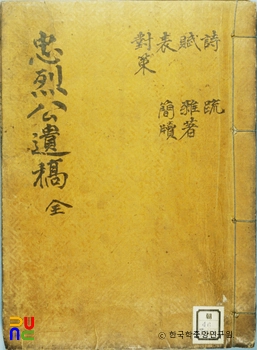 詩 疏
賦 雜著
表 簡牘
對策
忠烈公遺稿 全
© 한국학중앙연구원